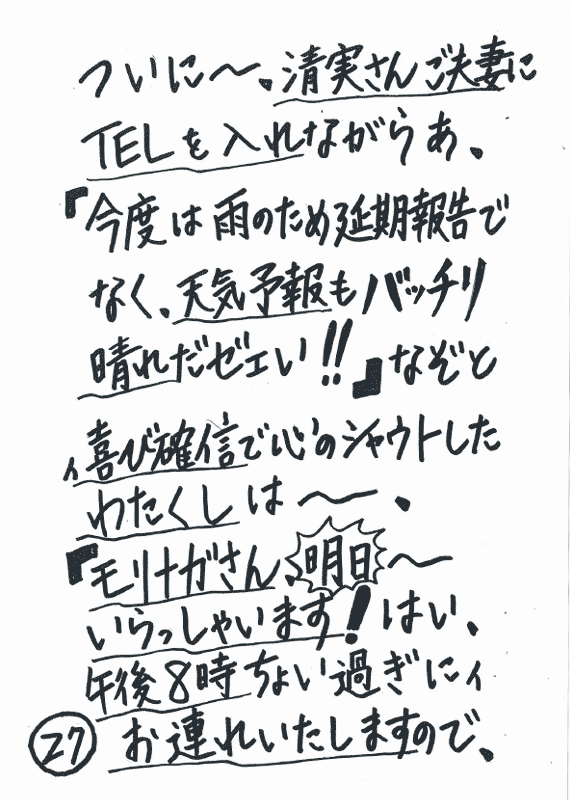 ついに〜、清実さんご夫妻に
TELを入れながらあ、
『今度は雨のため延期報告で
なく、天気予報もバッチリ
晴れだゼェい!!』なぞと
、喜び確信で心のシャウトした
わたくしは〜、
『モリナガさん、明日〜
いらっしゃいます!はい、
午後8時ちょい過ぎにィ
お連れいたしますので、
27